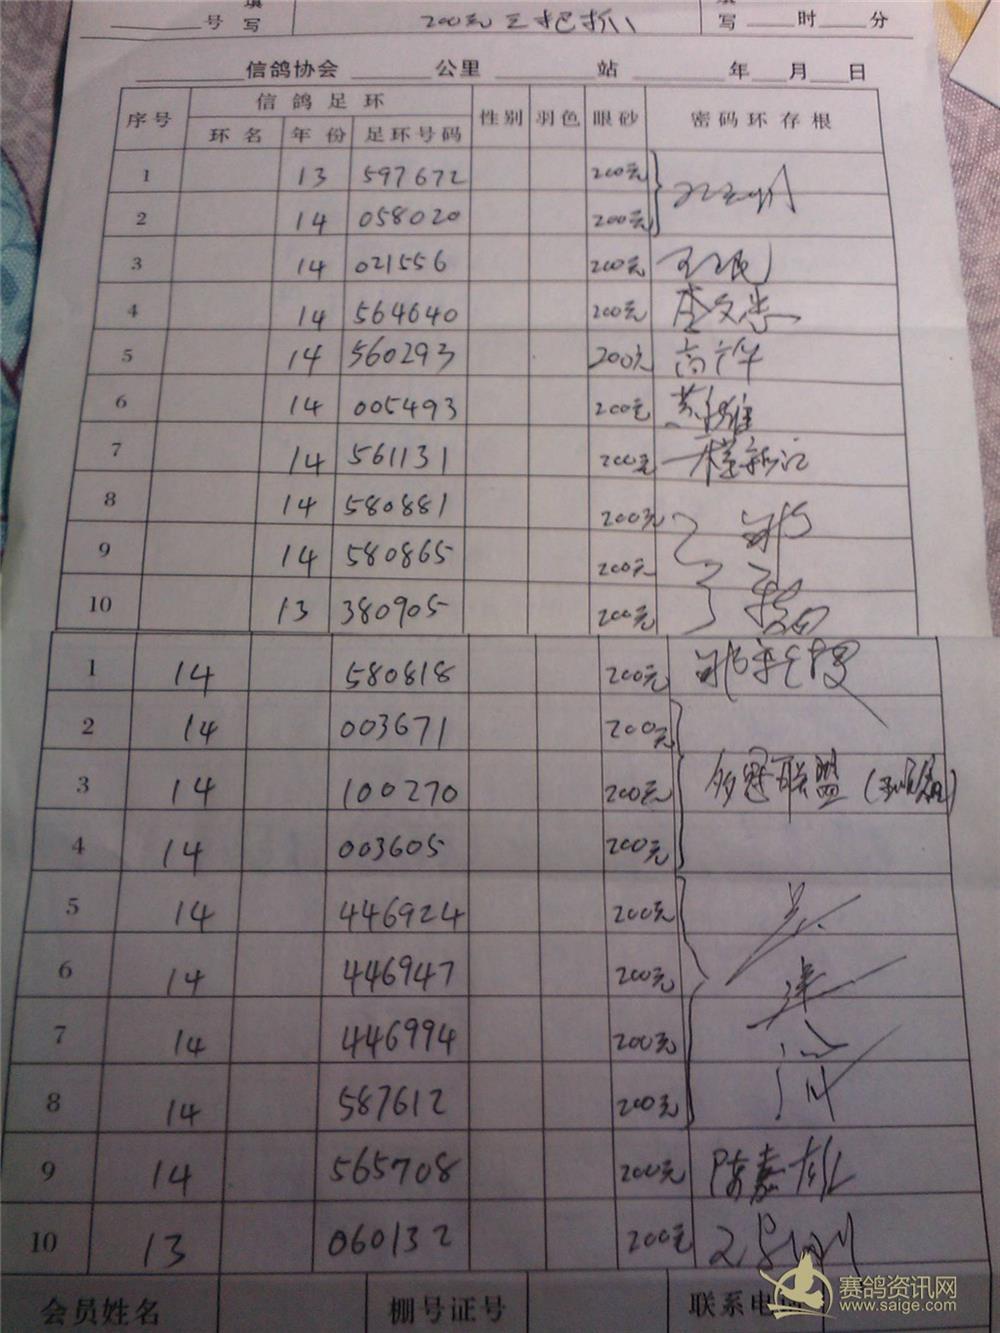 号 填写 200元三把抓 填写 时 分
信鸽协会 公里 站 年 月 日
序号 信鸽足环 性别 羽色 眼砂 密码环存根
环名 年份 足环号码
1 13 597672 200元
2 14 058020 200元
3 14 021556 200元
4 14 564640 200元
5 14 560293 200元
6 14 005493 200元
7 14 561131 200元
8 14 580881 200元
9 14 580865 200元
10 13 380905 200元
1 14 580818 200元
2 14 003671 200元
3 14 100270 200元 多冠联盟
4 14 003605 200元
5 14 446924 200元
6 14 446947 200元
7 14 446994 200元
8 14 587612 200元
9 14 565708 200元 陈嘉雄
10 13 060132 200元
会员姓名 棚号证号 联系电
赛鸽资讯网
www.saige.com